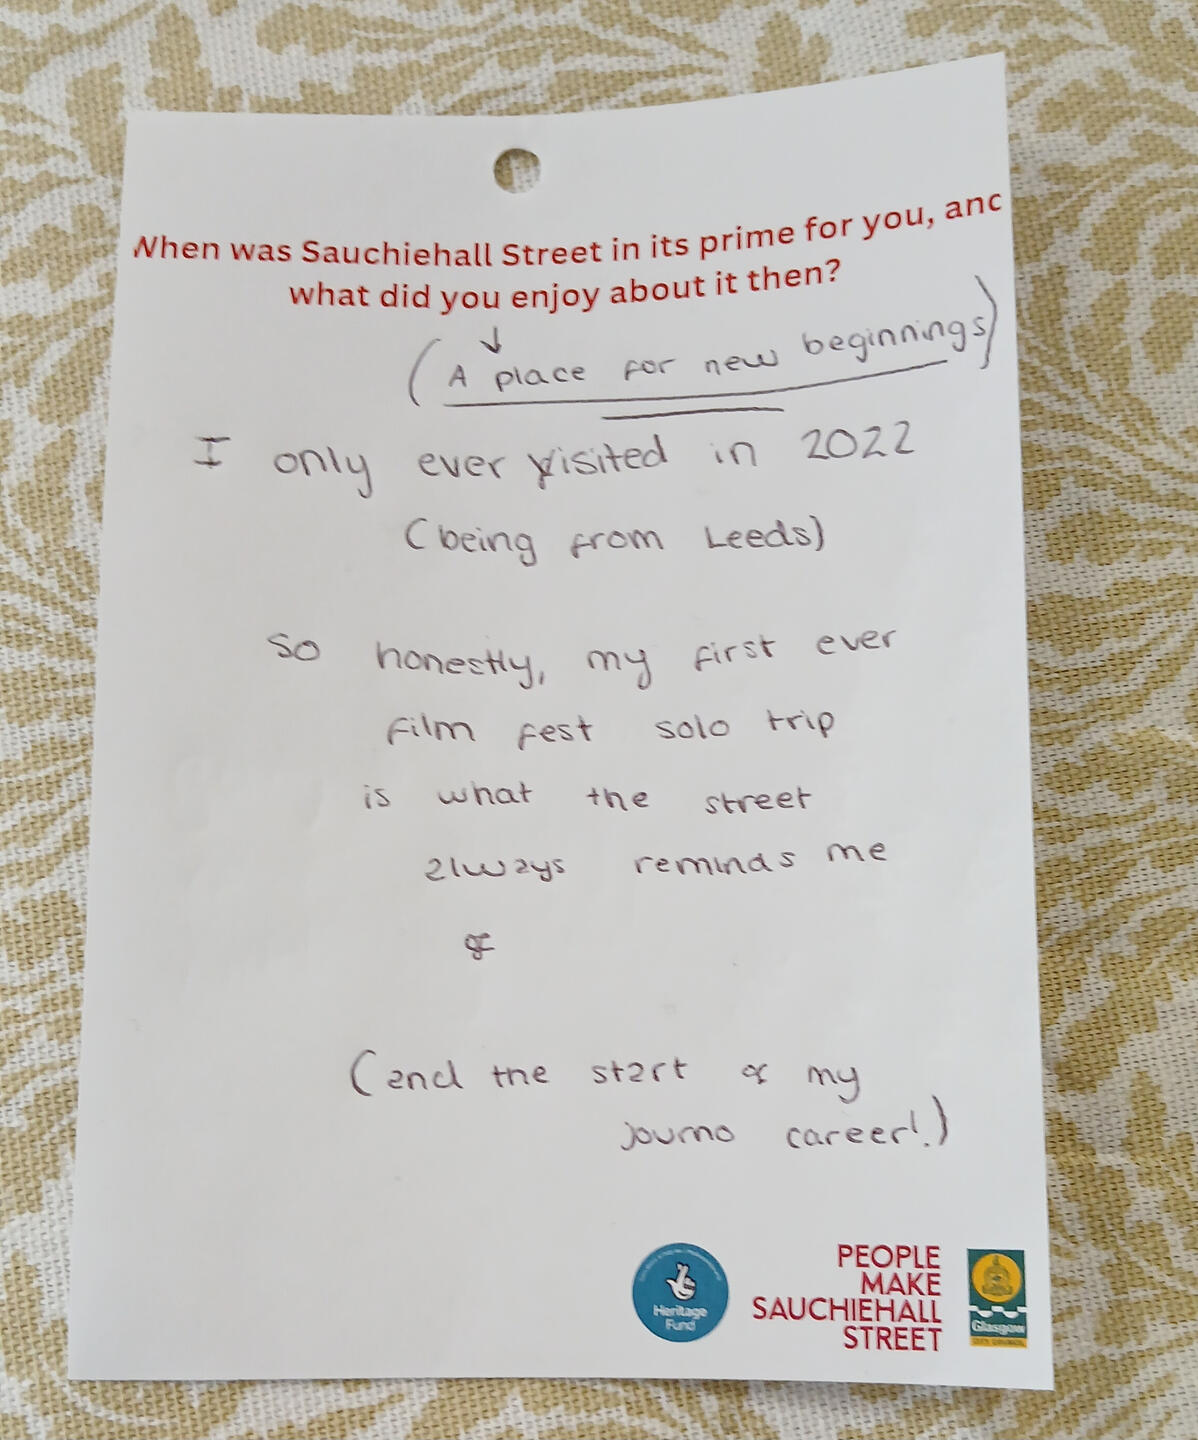 When was Sauchiehall Street in its prime for you, and
what did you enjoy about it then?
(A place for new beginnings)
I only ever visited in 2022
(being from Leeds)
So honestly, my first ever
film fest solo trip
is what the street
always reminds me
of
(and the start of my
journo career!)
Heritage
Fund
PEOPLE
MAKE
SAUCHIEHALL
STREET
Glasgow
CITY COUNCIL